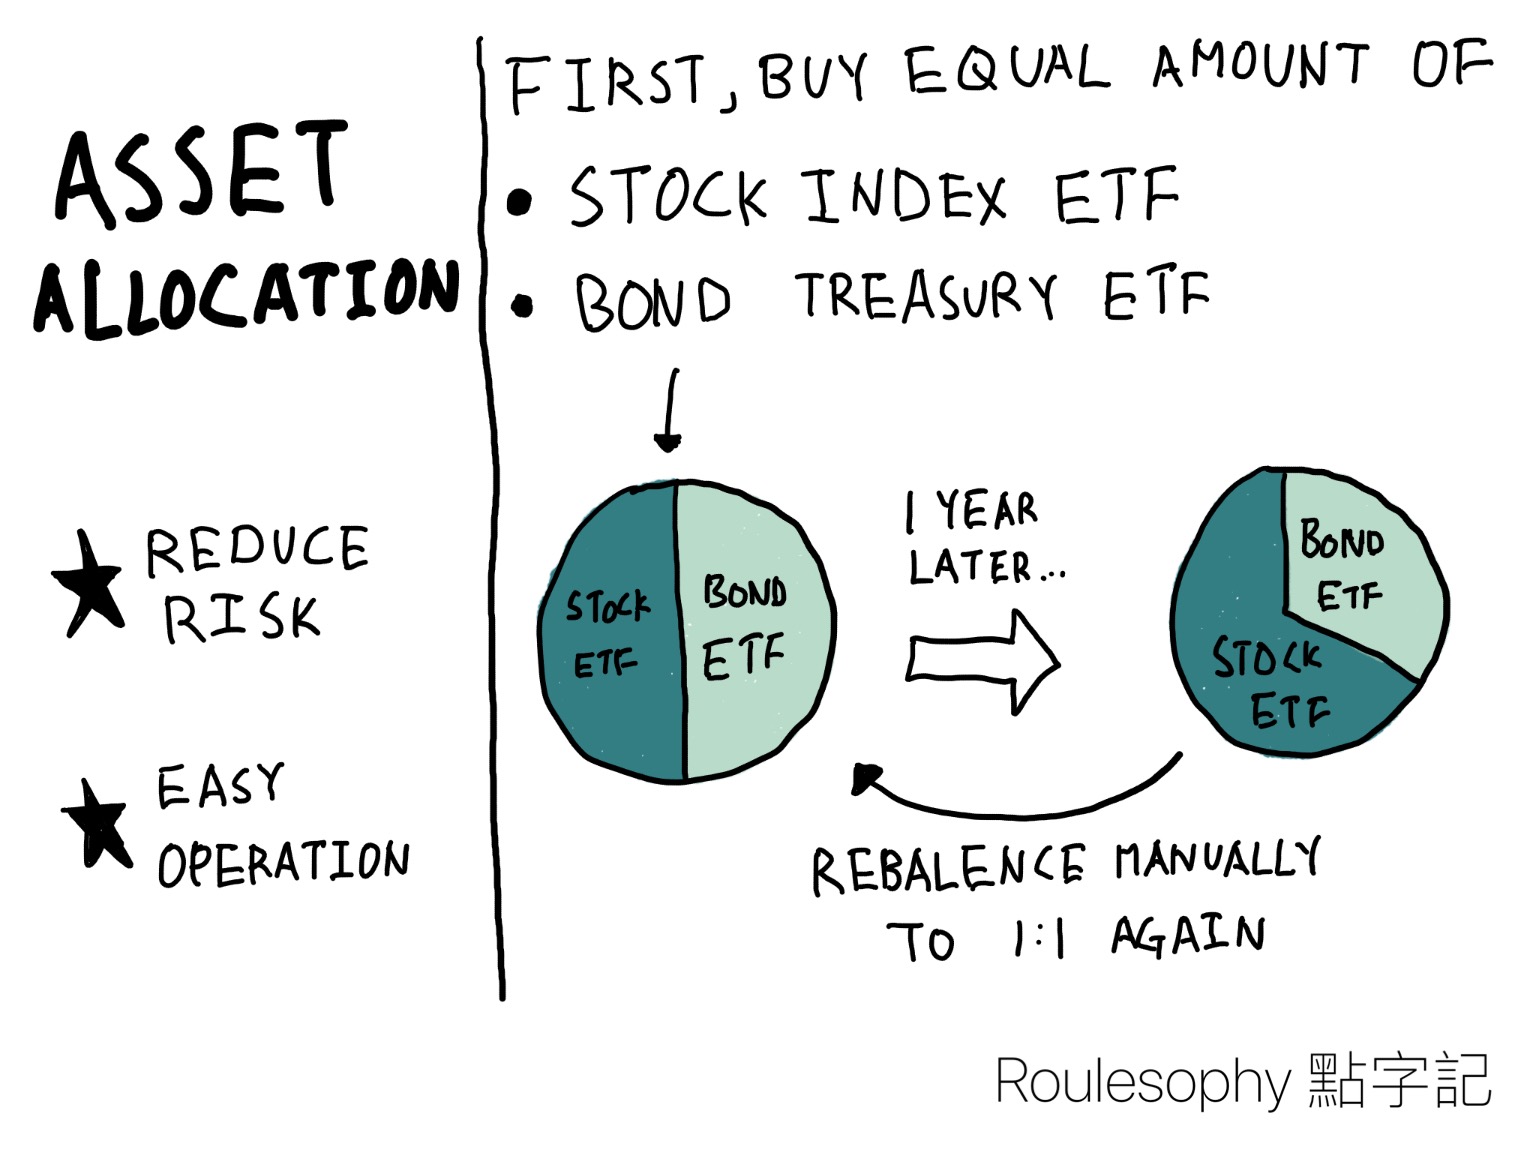 ASSET
ALLOCATION
★ REDUCE
RISK
★ EASY
OPERATION
FIRST, BUY EQUAL AMOUNT OF
• STOCK INDEX ETF
• BOND TREASURY ETF
STOCK
ETF
BOND
ETF
1 YEAR
LATER...
BOND
ETF
STOCK
ETF
REBALENCE MANUALLY
TO 1:1 AGAIN
Roulesophy 點字記